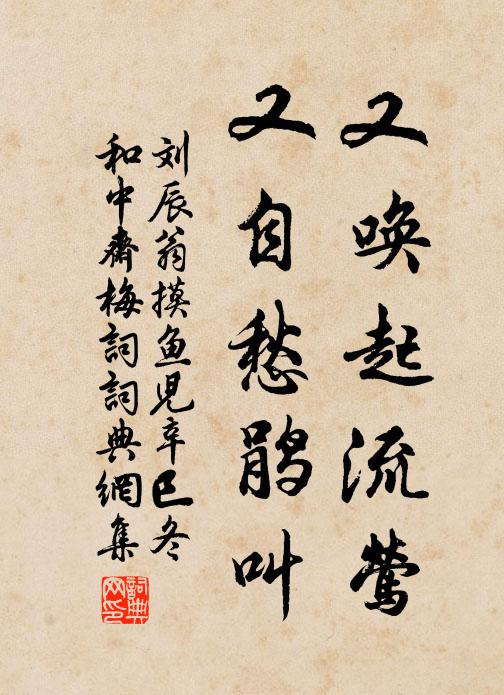 又唤起流莺
又自愁鹃叫
刘辰翁摸鱼儿辛巳冬
和中齋梅詞詞典網集
詞典
网印